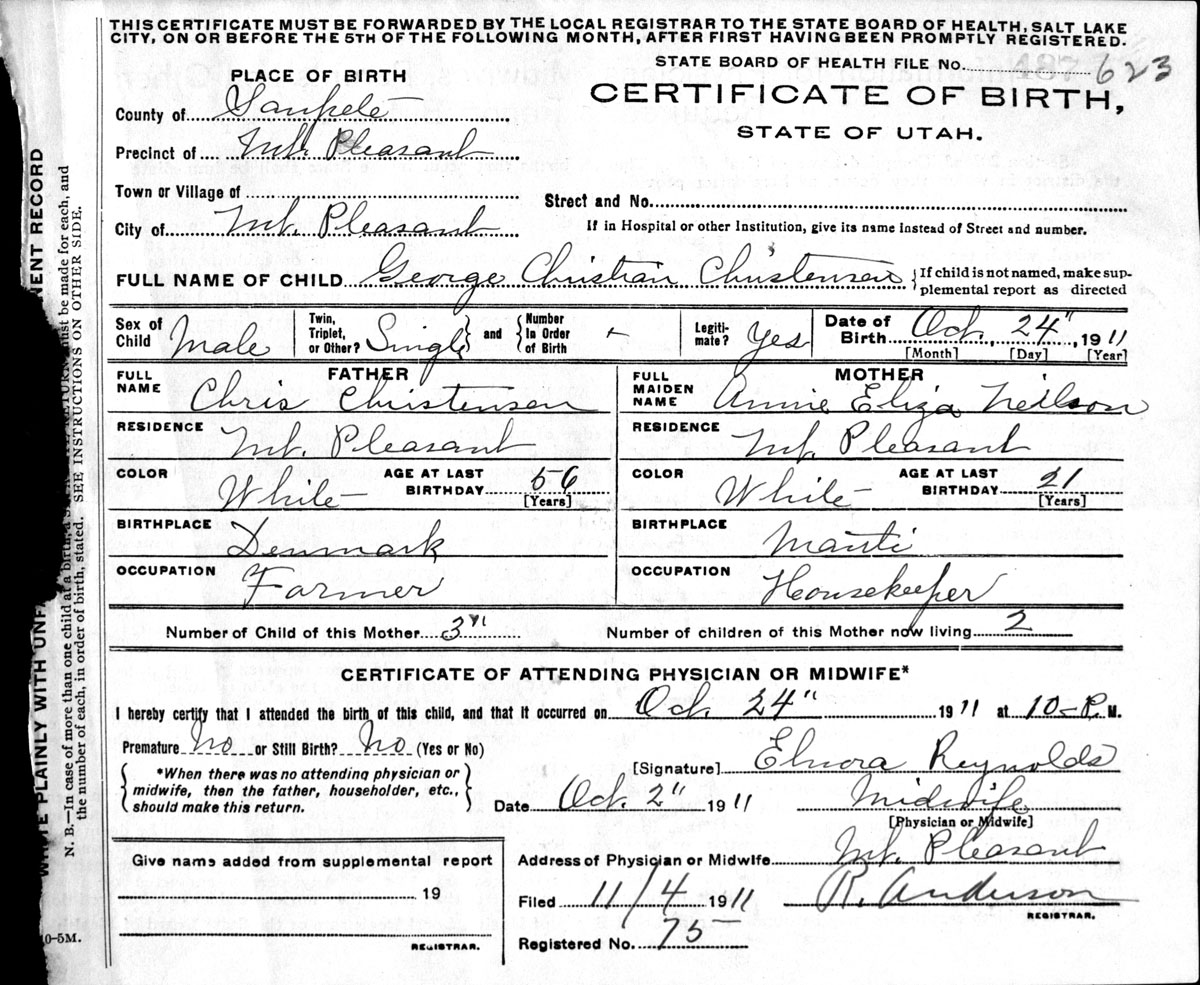 THIS CERTIFICATE MUST BE FORWARDED BY THE LOCAL REGISTRAR TO THE STATE BOARD OF HEALTH, SALT LAKE
CITY, ON OR BEFORE THE 5TH OF THE FOLLOWING MONTH, AFTER FIRST HAVING BEEN PROMPTLY REGISTERED.
STATE BOARD OF HEALTH FILE No. 623
PLACE OF BIRTH
CERTIFICATE OF BIRTH,
STATE OF UTAH.
County of Sanpete
Precinct of Mt. Pleasant
Town or Village of
Street and No.
City of Mt. Pleasant
If in Hospital or other Institution, give its name instead of Street and number.
FULL NAME OF CHILD George Christian Christensen { If child is not named, make sup-
plemental report as directed
Sex of Child Male Twin, Triplet, or Other? Single and Number In Order of Birth Legiti- mate? Yes Date of Birth Oct. 24" 1911
[Month] [Day] [Year]
FATHER MOTHER
FULL NAME Chris Christensen FULL MAIDEN NAME Annie Eliza Neilson
RESIDENCE Mt. Pleasant RESIDENCE Mt. Pleasant
COLOR White AGE AT LAST BIRTHDAY 56 [Years] COLOR White AGE AT LAST BIRTHDAY 21 [Years]
BIRTHPLACE Denmark BIRTHPLACE Manti
OCCUPATION Farmer OCCUPATION Housekeeper
Number of Child of this Mother 3 Number of children of this Mother now living 2
CERTIFICATE OF ATTENDING PHYSICIAN OR MIDWIFE*
I hereby certify that I attended the birth of this child, and that it occurred on Oct. 24" 1911 at 10- P. M.
Premature No or Still Birth? No (Yes or No)
[Signature] Elnora Reynolds
*When there was no attending physician or
midwife, then the father, householder, etc.,
should make this return.
Date Oct. 2" 1911 Midwife
[Physician or Midwife]
Give name added from supplemental report
19
REGISTRAR.
Address of Physician or Midwife Mt. Pleasant
Filed 11/4 1911 R. Anderson
REGISTRAR.
Registered No. 75
N. B.—In case of more than one child at a birth, a must be made for each, and
the number of each, in order of birth, stated. SEE INSTRUCTIONS ON OTHER SIDE.
PLAINLY WITH
RECORD
0-5M.